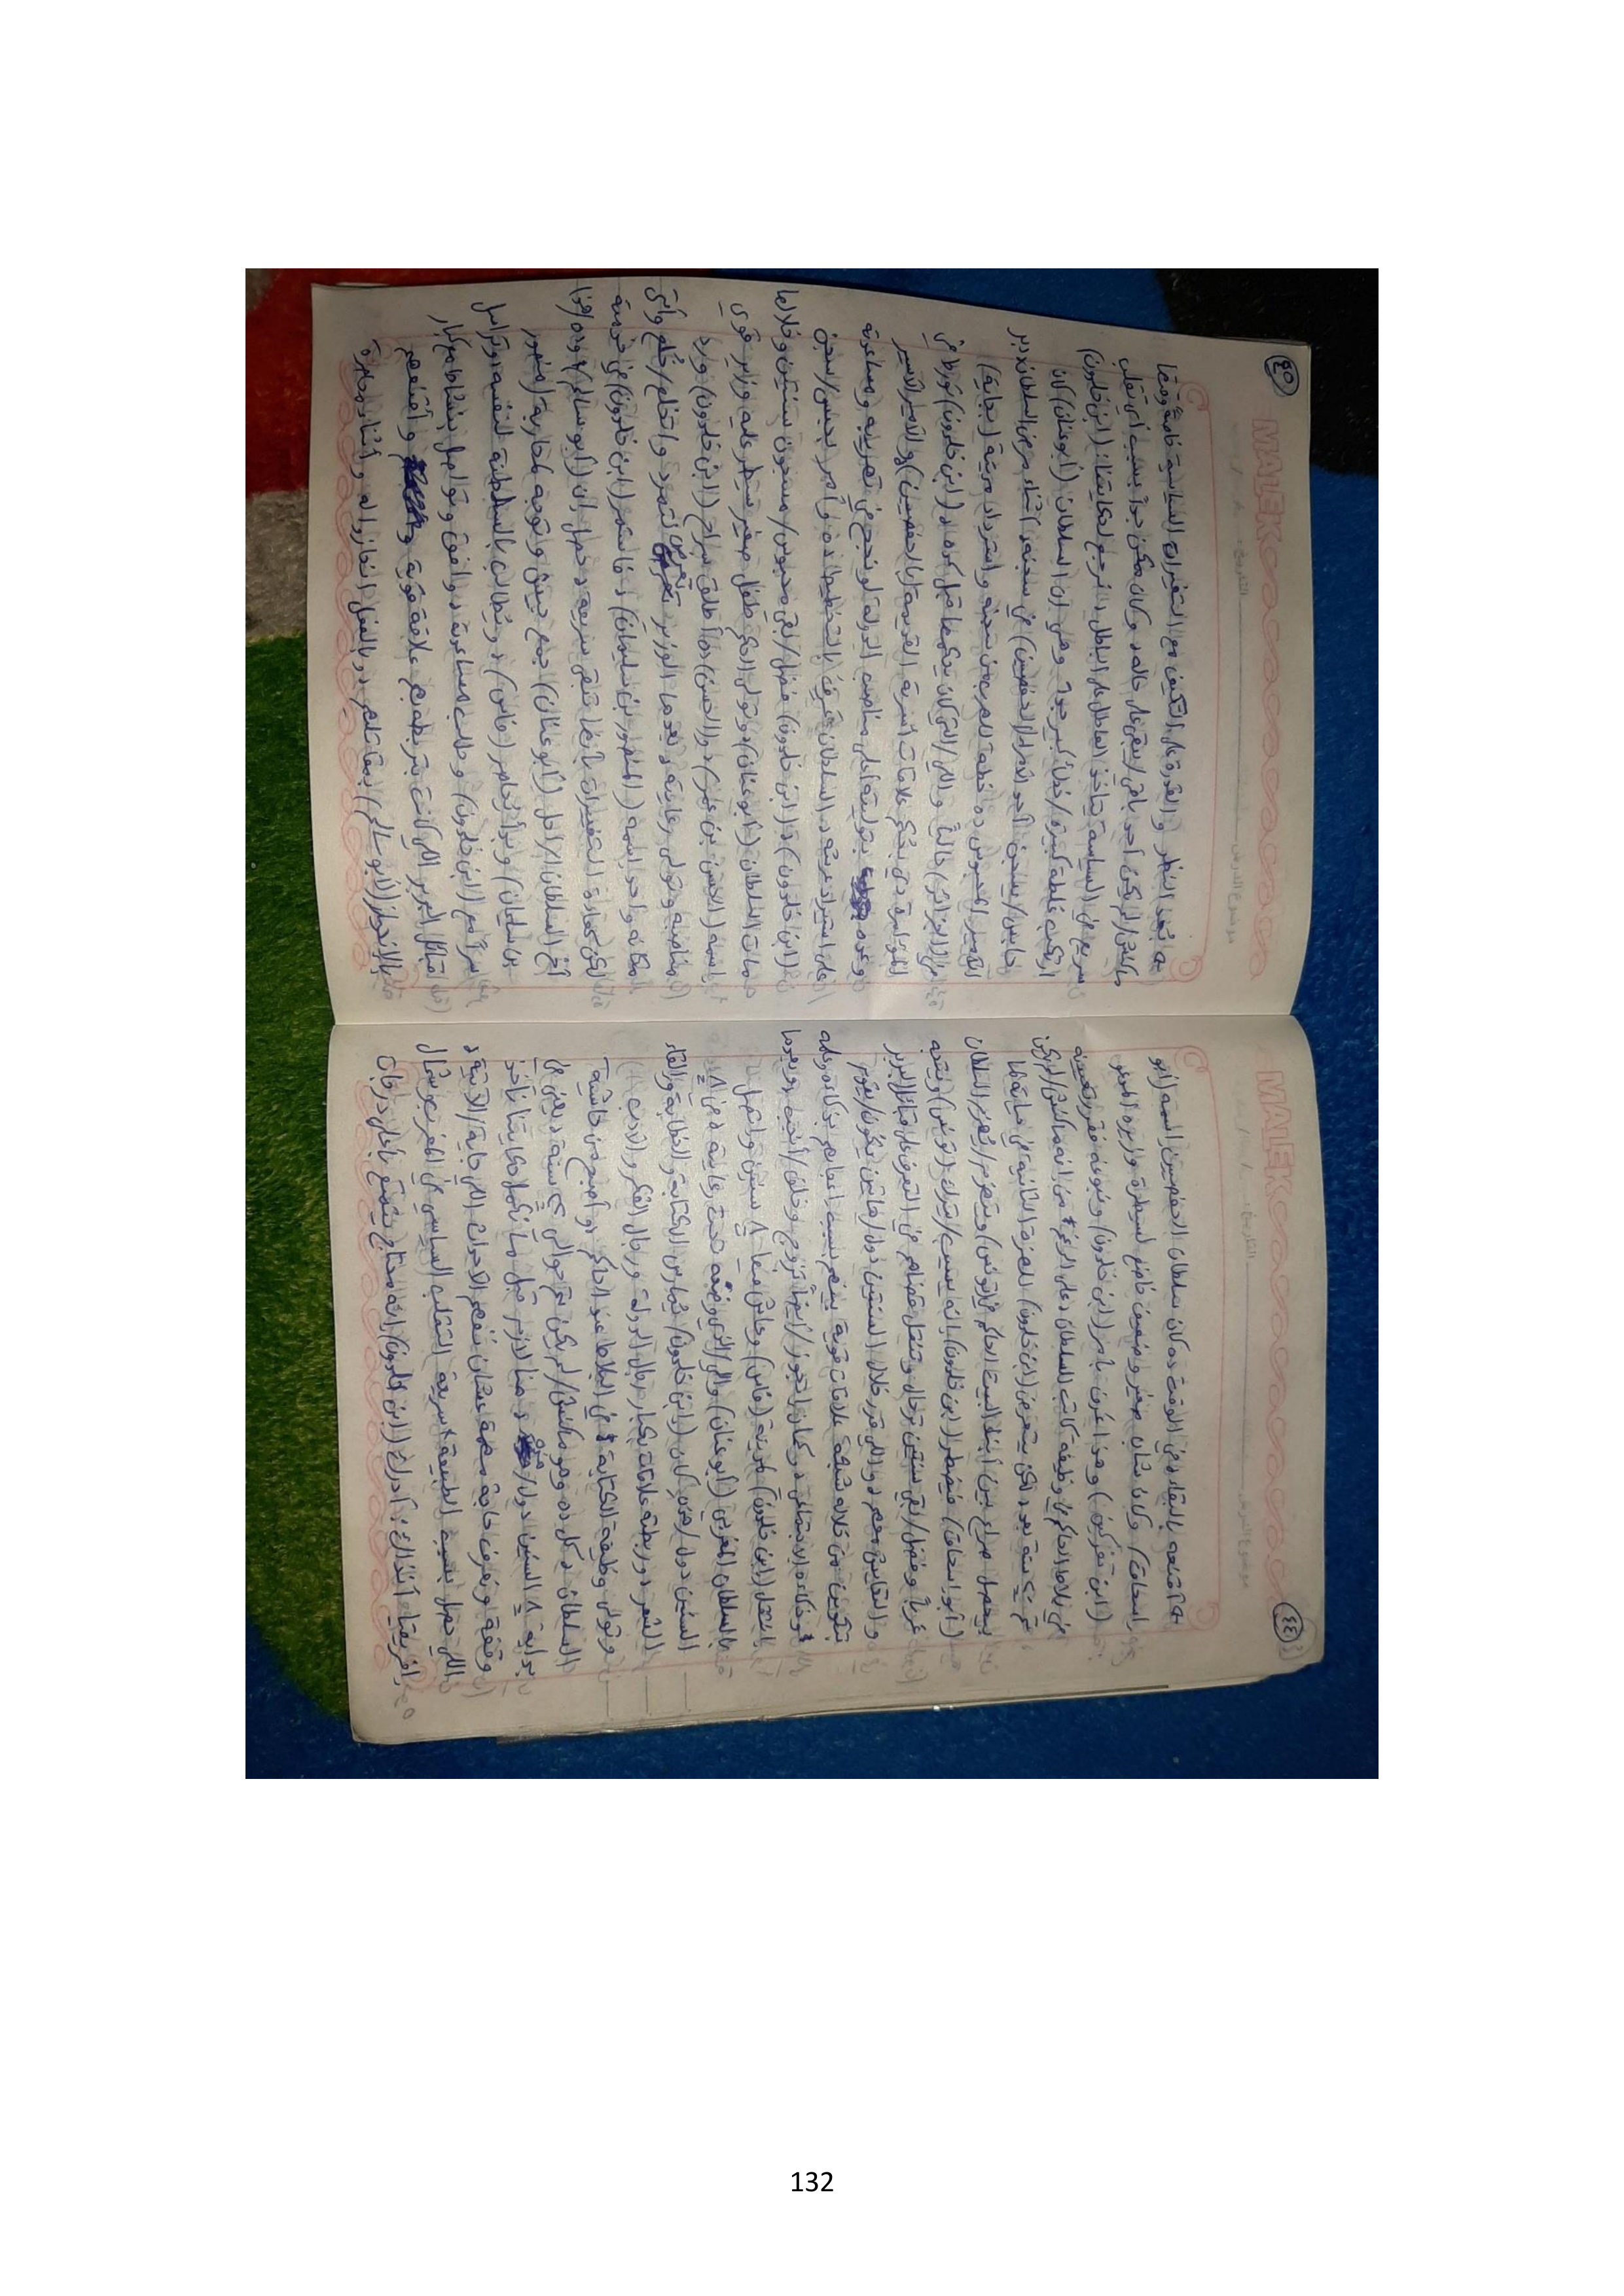 ٤٤
MALEK
التاريخ: / /
موضوع الدرس
أقنعه بالبقاء، في الوقت ده كان سلطان الحفصيين اسمه (أبو
إسحاق) وكان شاب صغير وضعيف خاضع لسيطرة وزيره
(ابن تفركين) وهذا عرف بأمر (ابن خلدون) ونبوغه فقرر تعيينه
في بلاط الحاكم في وظيفة كاتب السلطان، على الرغم من انه ماكنش/لم يكن
تم سنة بعد، لكن يتعرض (ابن خلدون) للهزة الثانية في حياته لما
بيحصل صراع بين أبناء البيت الحاكم في (تونس) ويتهزم/يُهزم السلطان
(أبو إسحاق) فيضطر (ابن خلدون) انه يسيب/يترك (تونس) ويتجه
غرباً وفضل/بقى سنتين ترحال وتنقل قضاهم في التعرف على قبائل البربر
والتعايش معهم، واللي قدر خلال السنتين دول/هاتين يكون/يقوم
بتكوين من خلاله شبكة علاقات قوية بينهم بسبب اعجابهم بذكاءه وعلمه
وذكاءه الاجتماعي، وكمان اتجوز/أيضاً تزوج وخلف/أنجب، وبعدها
انتقل (ابن خلدون) لمدينة (فاس) وعاش فيها ٨ سنين واتصل
بالسلطان المغربي (أبو عنان) واللي/الذي وضعه تحت رعايته، في ٨
السنين دول/هذه كان (ابن خلدون) يُمارس الكتابة والخطابة والقاء
الشعر، وربطته علاقات بكبار رجال الدولة ورجال الفكر والأدب
وتولى وظيفة الكتابة في البلاط عند الحاكم، وأصبح من حاشية
السلطان، كل ده وهو ماكنش/لم يكن تم حوالي سنة، يعني في
بداية ٨ السنين دول/هذه، هنا لازم قبل ما نكمل حكايتنا ناخد
وقفة ونعرف حاجة مهمة عشان نفهم الأحداث اللي جاية/الآتية،
اللي حصل بسبب الطبيعة سريعة التقلب السياسي في المغرب وشمال
افريقيا آنذاك: أدرك (ابن خلدون) انه محتاج يتمتع بأعلى درجات
٤٥
MALEK
التاريخ: / /
موضوع الدرس
بُعد النظر والقدرة على التكيف مع التغيرات السياسية، خاصةً وقتها
ماكنش/لم يكن أحد باقي/يبقى على حاله، وكان ممكن جداً بسبب أي تقلب
سريع في السياسة يتاخد العاطل على الباطل، نرجع لحكايتنا: (ابن خلدون)
ارتكب غلطة كبيرة/خطأ كبير جداً وهي إن السلطان (أبو عنان) كان
حابس/يسجن أحد الأمراء (الحفصيين) في سجنه، أثناء مرض السلطان، دبر
الأمير المحبوس ده خطة للهرب من سجنه واسترداد مدينة (بجاية)
(في الجزائر) حالياً واللي/التي كان يحكمها قبل كده، (ابن خلدون) تورط في
المؤامرة دي بحكم علاقات أسرته القديمة (بالحفصيين) والأمير الأسير
وعده بتوليته أعلى مناصب الدولة لو نجح في تهريبه ومساعدته
على استرداد عرشه، السلطان عرف بالتخطيط ده وأمر بحبس/سجن
(ابن خلدون)، (ابن خلدون) فضل/بقى محبوس/مسجون سنتين وخلالها
مات السلطان (أبو عنان)، وتولى الحكم طفل صغير سيطر عليه وزير قوي
اسمه (الحسن بن عمر)، و(الحسن) ده أطلق سراح (ابن خلدون) ورد
مناصبه وتولى رعايته، بعدها الوزير تعرض لتمرد واتخلع/خُلع وأتى
مكانه واحد اسمه (المنصور بن سليمان)، فاستمر (ابن خلدون) في خدمته
لكن كعادة التغيرات بأنها تبقى سريعة، حصل إن (أبو سالم) وده/هذا
أخ السلطان الراحل (أبو عنان) جمع جيش وتوجه لمحاربة (منصور
بن سليمان) وبدأ يحاصر (فاس)، ويطالب بالسلطنة لنفسه، وتراسل
سراً مع (ابن خلدون) وطلب مساعدته، وافق وتواصل بنشاط مع كبار
قبائل البربر اللي كانت بتربطه بهم علاقة قوية وأقنعهم
بالانحياز (لأبو سالم) بمقابلهم، وبالفعل انحازوا له وأثناء محاصرة
132